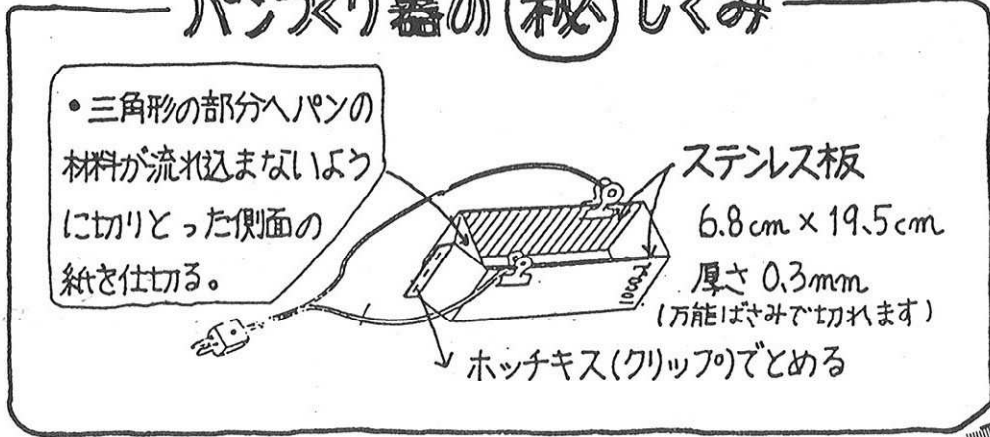 パンづくり器の㊙しくみ
・三角形の部分へパンの
材料が流れ込まないよう
に切りとった側面の
紙を仕切る。
ステンレス板
6.8cm×19.5cm
厚さ0.3mm
(万能ばさみで切れます)
1000ml
ホッチキス(クリップ)でとめる